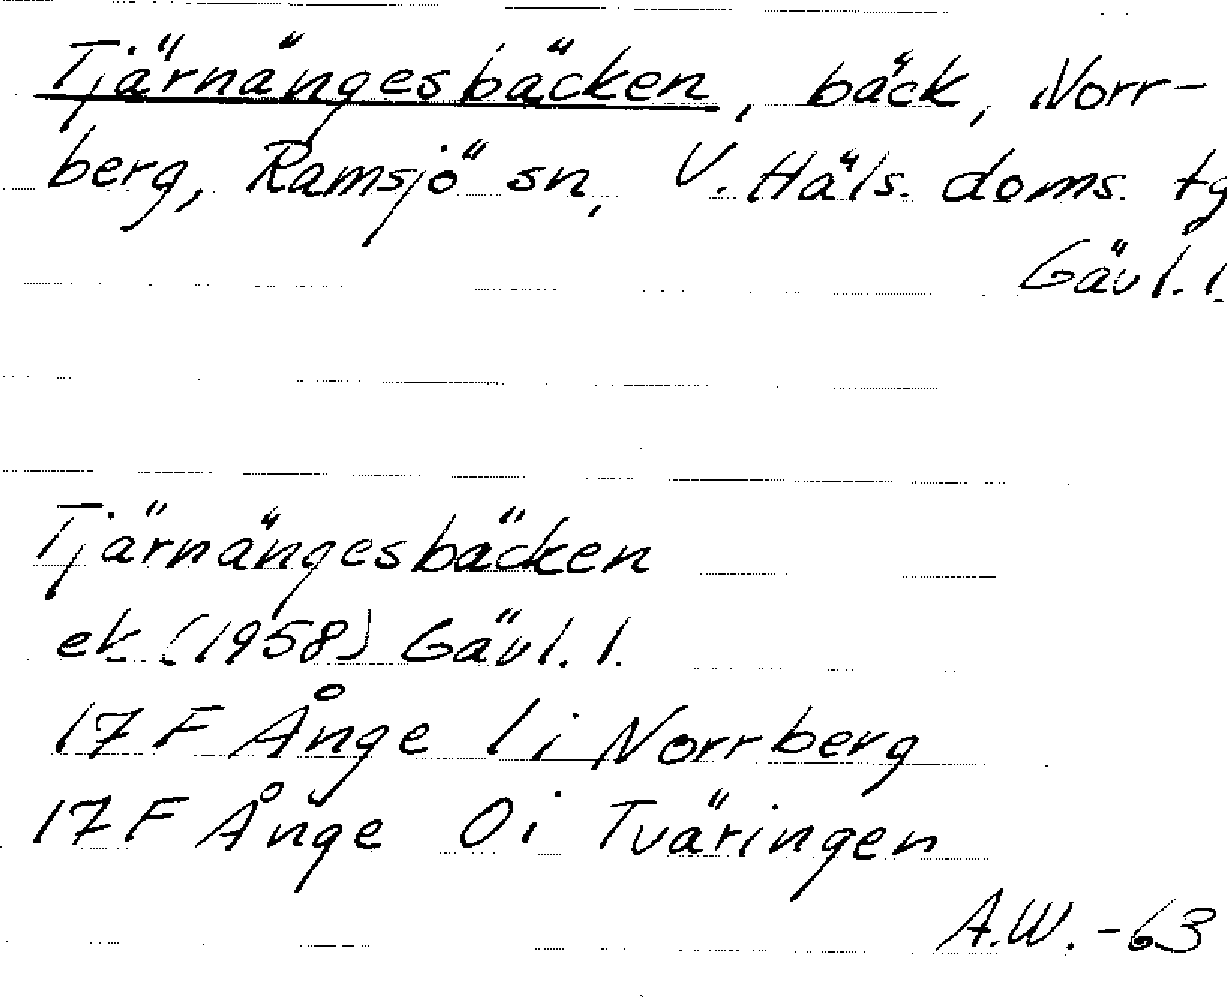 Tjärnängesbäcken, bäck, Norr-
berg, Ramsjö sn, V. Häls. doms. tg
Gävl. l.
Tjärnängesbäcken
ek (1958) Gävl. l.
17 F Ånge 1 i Norrberg
17 F Ånge 0 i Tväringen
A.W. -63